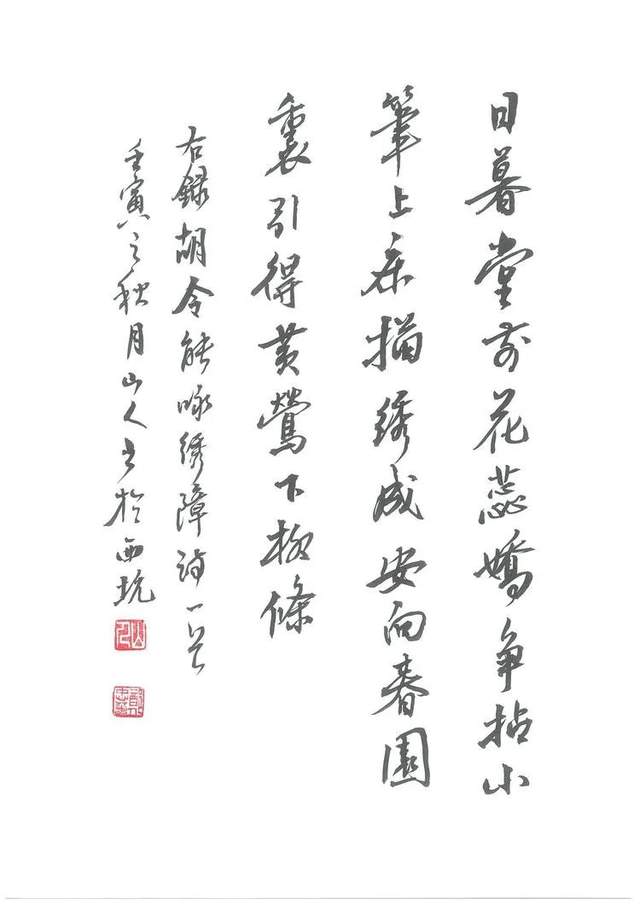 日暮堂前花蕊嬌争拈小
筆上床描绣成安向春園
裏引得黄鶯下柳條
右録胡令能咏绣障詩一首
壬寅之秋月山人书於西坑